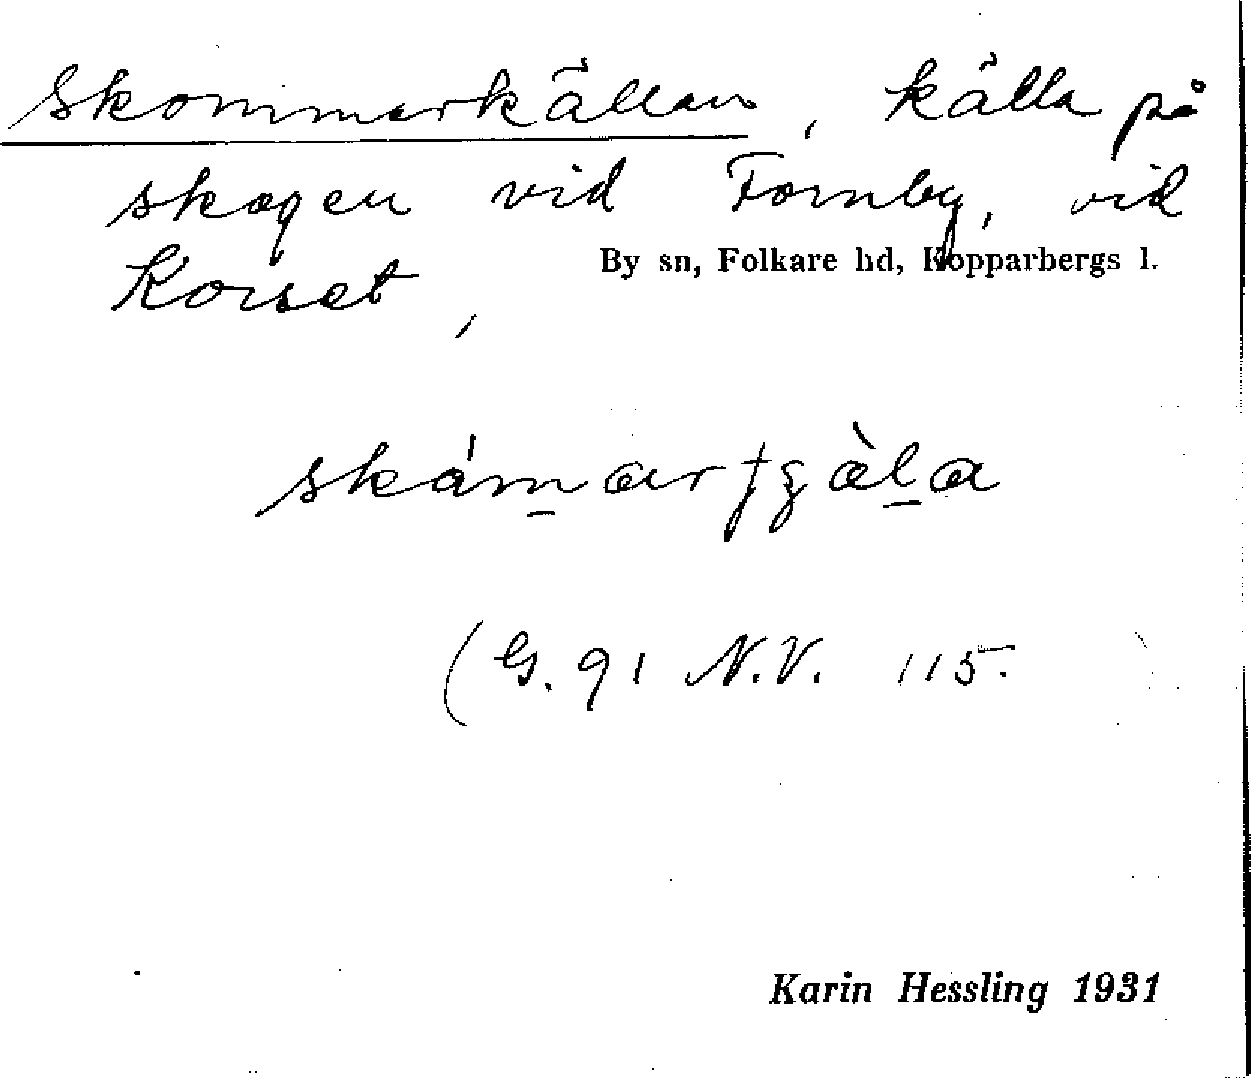 Skommarkällan, källa på
skogen vid Fornby, vid
By sn, Folkare hd, Kopparbergs l.
Korset,
(G. 91 N.V. 115.
Karin Hessling 1931